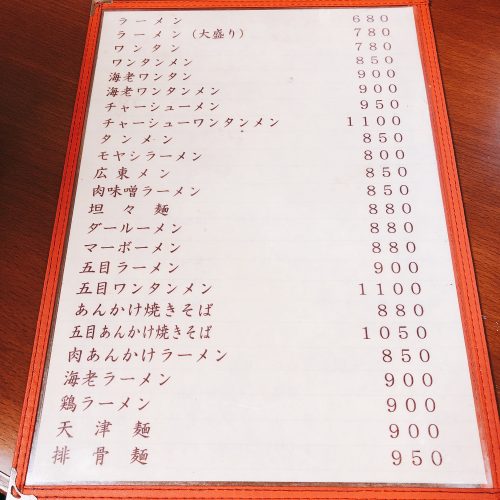 ラーメン 680
ラーメン(大盛り) 780
ワンタン 780
ワンタンメン 850
海老ワンタン 900
海老ワンタンメン 900
チャーシューメン 950
チャーシューワンタンメン 1100
タンメン 850
モヤシラーメン 800
広東メン 850
肉味噌ラーメン 850
坦々麺 880
ダールーメン 880
マーボーメン 880
五目ラーメン 900
五目ワンタンメン 1100
あんかけ焼きそば 880
五目あんかけ焼きそば 1050
肉あんかけラーメン 850
海老ラーメン 900
鶏ラーメン 900
天津麺 900
排骨麺 950